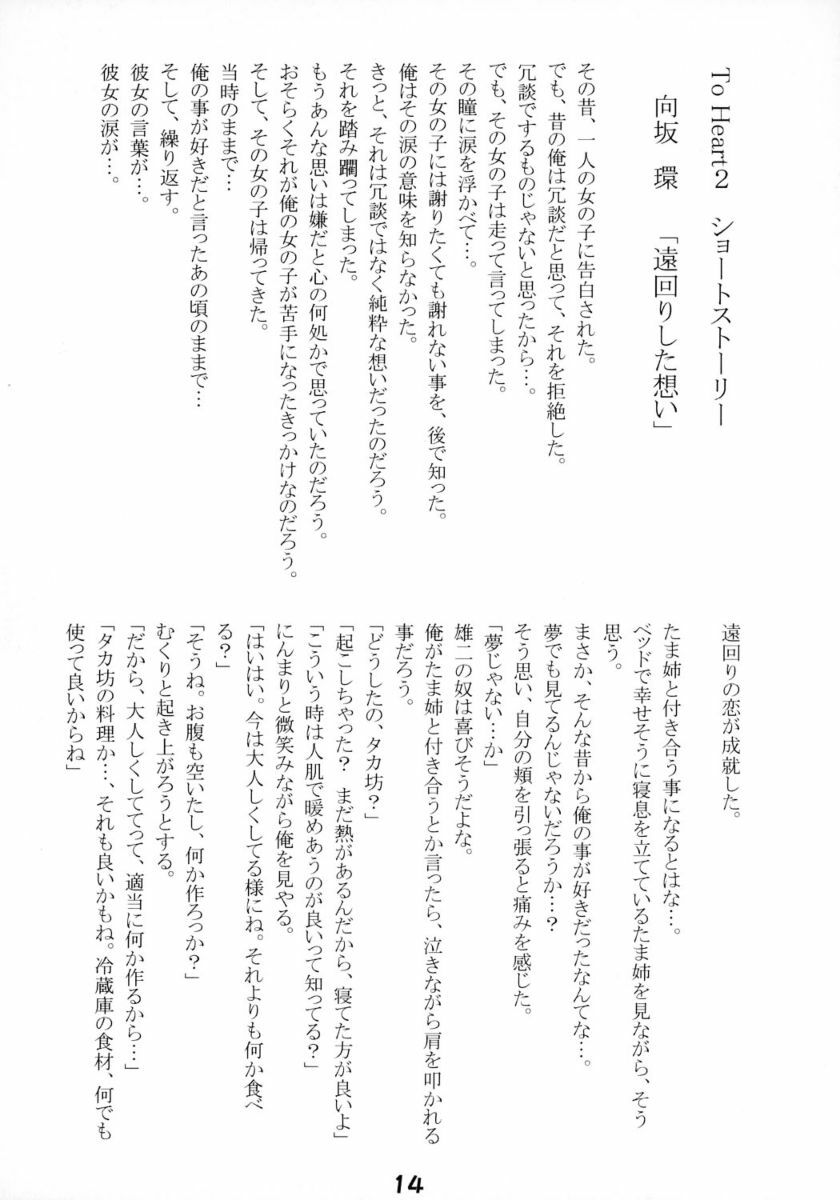 To Heart2　ショートストーリー
向坂　環　「遠回りした想い」
その昔、一人の女の子に告白された。
でも、昔の俺は冗談だと思って、それを拒絶した。
冗談でするものじゃないと思ったから…。
でも、その女の子は走って言ってしまった。
その瞳に涙を浮かべて…。
その女の子には謝りたくても謝れない事を、後で知った。
俺はその涙の意味を知らなかった。
きっと、それは冗談ではなく純粋な想いだったのだろう。
それを踏み躙ってしまった。
もうあんな思いは嫌だと心の何処かで思っていたのだろう。
おそらくそれが俺の女の子が苦手になったきっかけなのだろう。
そして、その女の子は帰ってきた。
当時のままで…
俺の事が好きだと言ったあの頃のままで…
そして、繰り返す。
彼女の言葉が…。
彼女の涙が…。
遠回りの恋が成就した。
たま姉と付き合う事になるとはな…。
ベッドで幸せそうに寝息を立てているたま姉を見ながら、そう
思う。
まさか、そんな昔から俺の事が好きだったなんてな…。
夢でも見てるんじゃないだろうか…？
そう思い、自分の頬を引っ張ると痛みを感じた。
「夢じゃない…か」
雄二の奴は喜びそうだよな。
俺がたま姉と付き合うとか言ったら、泣きながら肩を叩かれる
事だろう。
「どうしたの、タカ坊？」
「起こしちゃった？　まだ熱があるんだから、寝てた方が良いよ」
「こういう時は人肌で暖めあうのが良いって知ってる？」
にんまりと微笑みながら俺を見やる。
「はいはい。今は大人しくしてる様にね。それよりも何か食べ
る？」
「そうね。お腹も空いたし、何か作ろっか？」
むくりと起き上がろうとする。
「だから、大人しくしててって、適当に何か作るから…」
「タカ坊の料理か…、それも良いかもね。冷蔵庫の食材、何でも
使って良いからね」
14